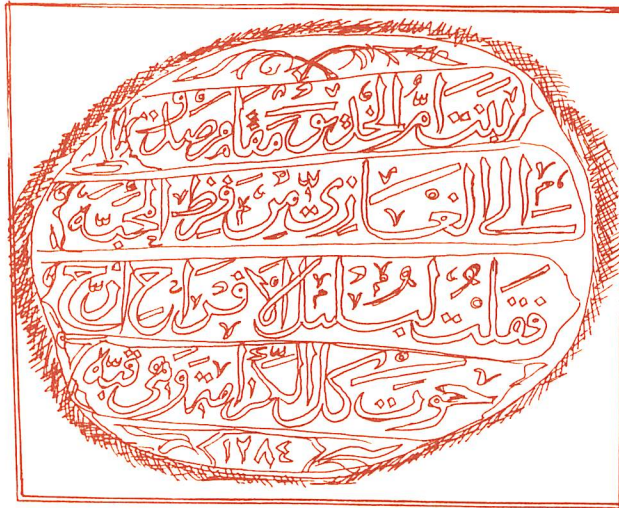 بنت امّ الخديو مقام صدق
الى الغازيّ من فرط المحبّة
فقلت لبلبل الافراح ارّخ
حوت كل الكرامة وهي قبّة
١٢٨٤